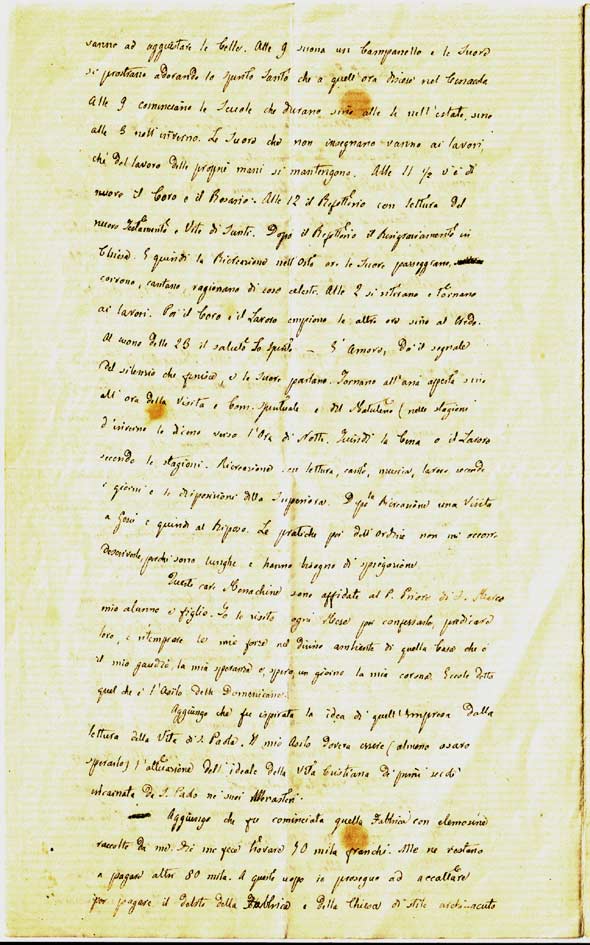 vanno ad aggiustare le Celle. Alle 9 suona un Campanello e le Suore
si prostrano adorando lo Spirito Santo che a quell'ora discese nel Cenacolo
Alle 9 cominciano le Scuole che durano sino alle 4 nell'estate, sino
alle 3 nell'inverno. Le Suore che non insegnano vanno ai lavori,
chè del lavoro delle proprie mani si mantengono. Alle 11 ½ v'è di
nuovo il Coro e il Rosario. Alle 12 il Refettorio con lettura del
nuovo Testamento e Vite di Santi. Dopo il Refettorio il Ringraziamento in
Chiesa. E quindi la Ricreazione nell'Orto ove le Suore passeggiano,
corrono, cantano, ragionano di cose celesti. Alle 2 si ritirano e tornano
ai lavori. Poi il Coro e il Lavoro empiono le altre ore sino al Credo.
Al suono delle 23 il saluto Lo Spirito — E' Amore, Dà il segnale
del silenzio che finisce, e le Suore parlano. Tornano all'aria aperta sino
all'ora della Visita e Com. Spirituale e del Matutino (nelle stagioni
d'inverno lo dicono verso l'Ora di Notte. Quindi la Cena o il Lavoro
secondo le stagioni. Ricreazione con lettura, canto, musica, lavoro secondo
i giorni e le disposizioni della Superiora. Dopo la Ricreazione una Visita
a Gesù e quindi al Riposo. Le pratiche poi dell'Ordine non mi occorre
descriverle, perchè sono lunghe e hanno bisogno di spiegazione
Queste care Monachine sono affidate al P. Priore di S. Marco
mio alunno e figlio. Io le visito ogni Mese per confessarle, predicare
loro, e ritemprare le mie forze nel divino ambiente di quella Casa che è
il mio gaudio, la mia speranza e, spero, un giorno la mia corona. Eccole detto
quel che è l'Asilo delle Domenicane.
Aggiungo che fu ispirata la idea di quell'Impresa dalla
lettura della Vita di S. Paola. Il mio Asilo dovea essere (almeno osavo
sperarlo) l'attuazione dell'ideale della Vita Cristiana di primi secoli
incarnata da S. Paola nei suoi Monasteri.
Aggiungo che fu cominciata quella Fabbrica con elemosine
raccolte da me. Dio me fece trovare 70 mila franchi. Me ne restano
a pagare altri 80 mila. A quest'uopo io proseguo ad accattare
per pagare il debito della Fabbrica e della Chiesa di stile archiacuto